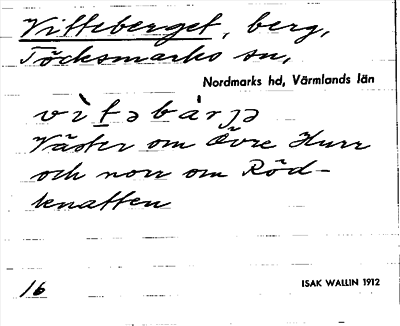 Vitteberget, berg,
Töcksmarks sn,
Nordmarks hd, Värmlands län
vìtəbàrjə
Väster om Övre Hurr
och norr om Röd-
knatten
16
ISAK WALLIN 1912